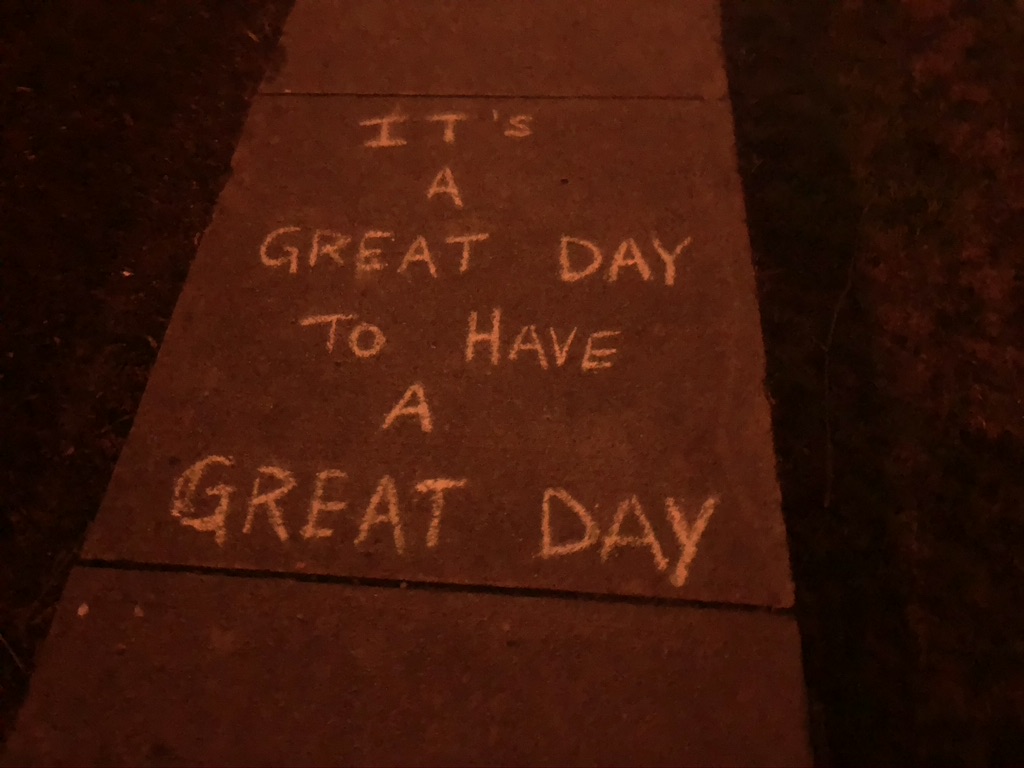 IT's
A
GREAT DAY
TO HAVE
A
GREAT DAY